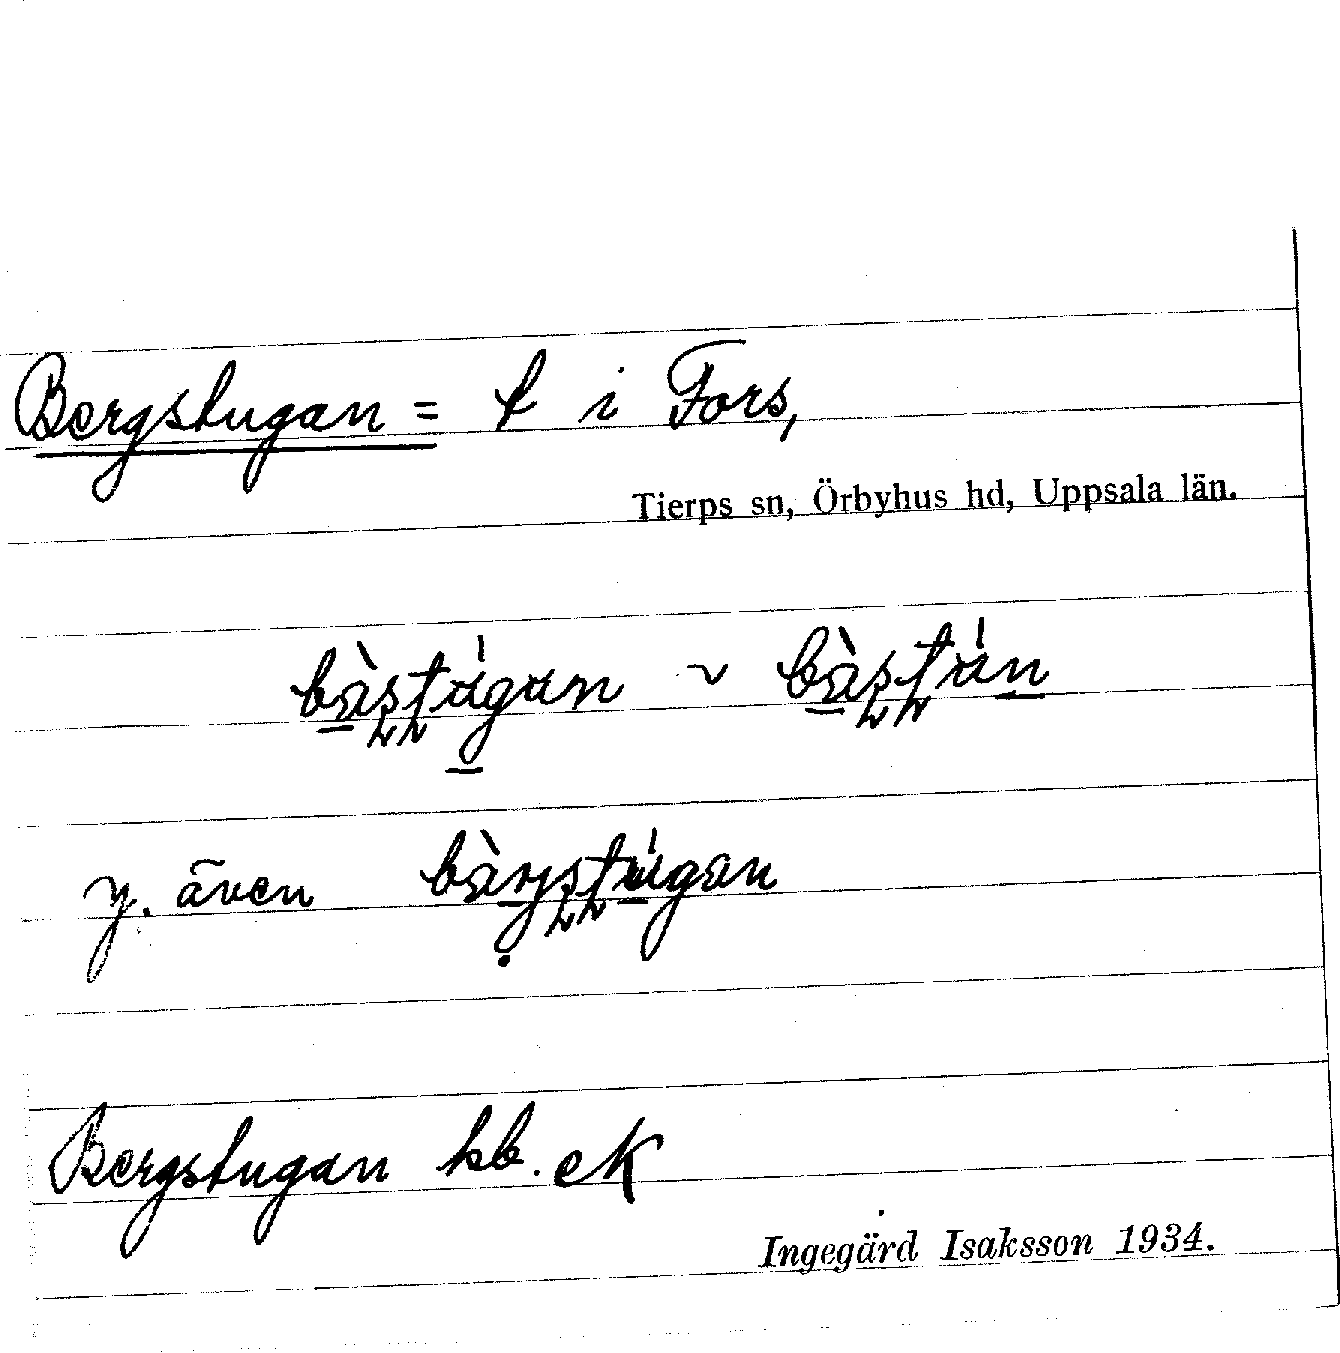 Bergstugan = t i Fors,
Tierps sn, Örbyhus hd, Uppsala län.
bàstúgan ~ bàstún
y. även bàrjstúgan
Bergstugan kb. eK
Ingegärd Isaksson 1934.